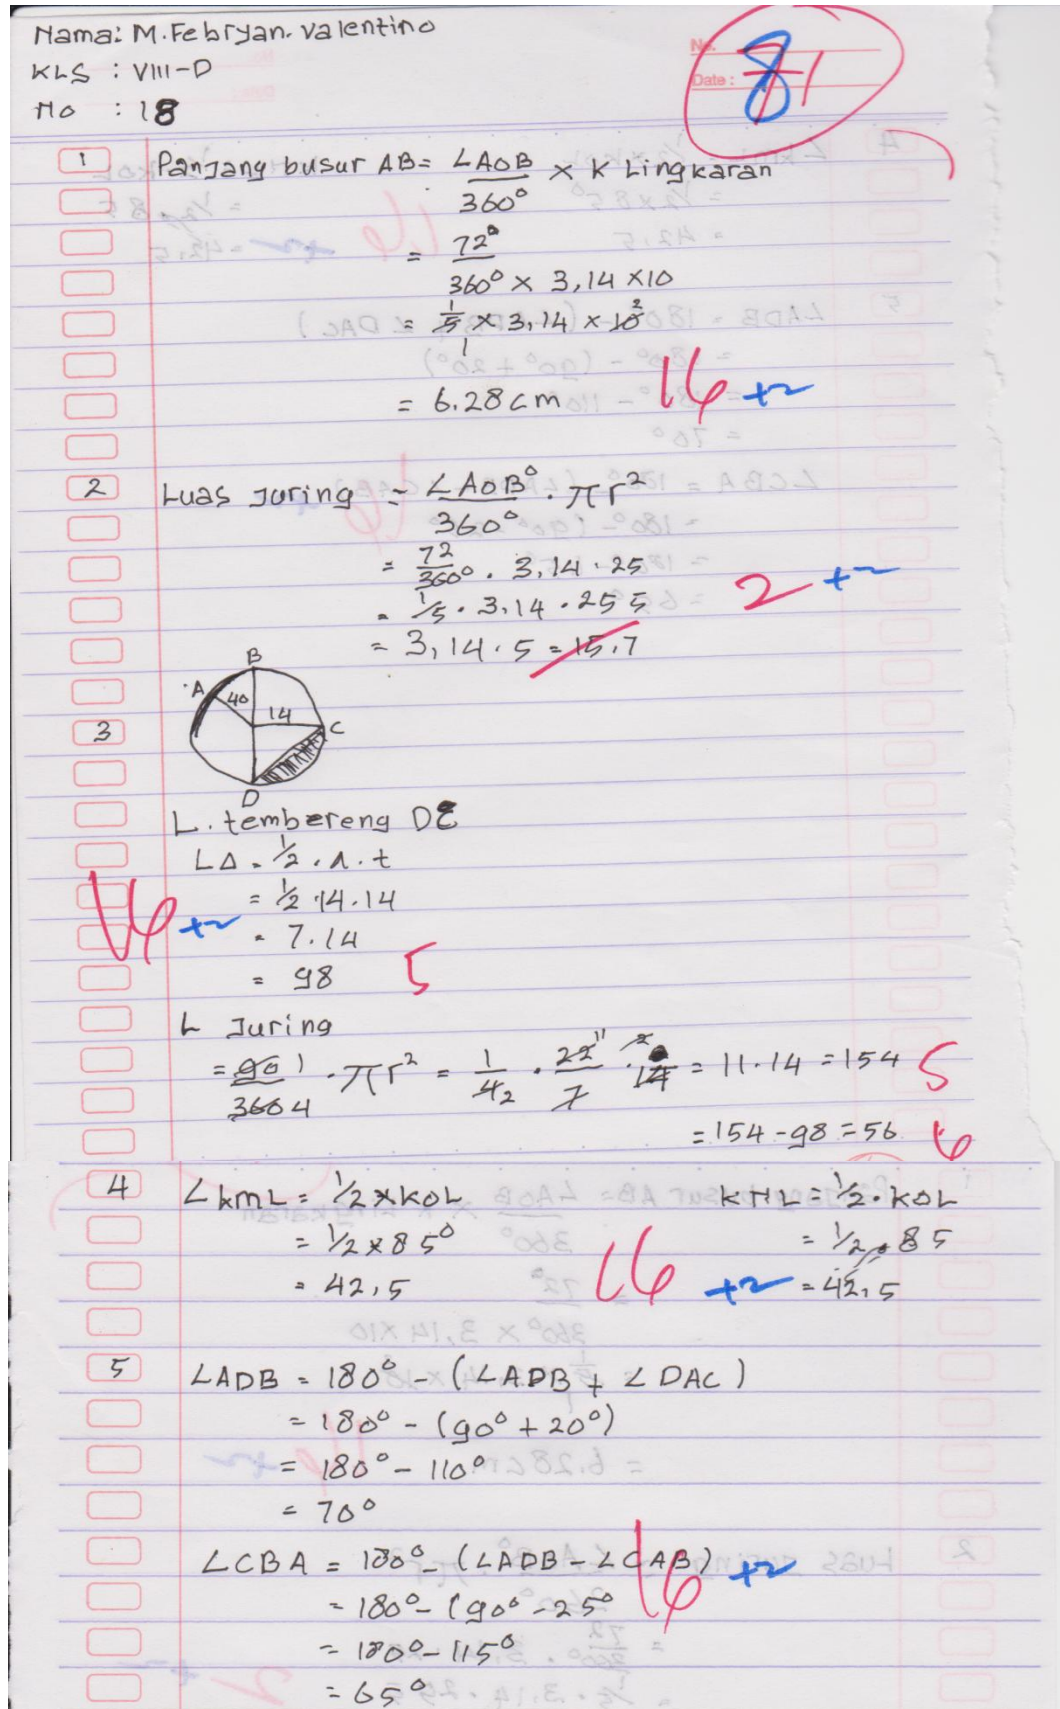 Nama: M. Febryan. Valentino
KLS : VIII-D
No : 18
No.
Date :
81
1 Panjang busur AB = ∠AOB/360° × K Lingkaran
= 72°/360° × 3,14 × 10
= 1/5 × 3,14 × 10 2
1
= 6.28 cm
16 +2
2 Luas Juring = ∠AOB°/360° . πr²
= 72/360° . 3,14 . 25
= 1/5 . 3,14 . 25 5
= 3,14 . 5 = 15.7
2 +2
B
A 40 14 C
3
D
L. tembereng DC
L∆ = 1/2 . a . t
= 1/2 14.14
16 +2
= 7.14
= 98 5
L Juring
= 90 1/360 4 . πr² = 1/4 2 . 22 11/7 . 14 2 = 11.14 = 154 5
= 154 - 98 = 56 6
4 ∠KML = 1/2 × KOL KNL = 1/2 . KOL
= 1/2 × 85° = 1/2 . 85
= 42,5 16 +2 = 42,5
5 ∠ADB = 180° - (∠ADB + ∠DAC)
= 180° - (90° + 20°)
= 180° - 110°
= 70°
∠CBA = 180° - (∠ADB - ∠CAB) 16 +2
= 180° - (90° - 25°
= 180° - 115°
= 65°